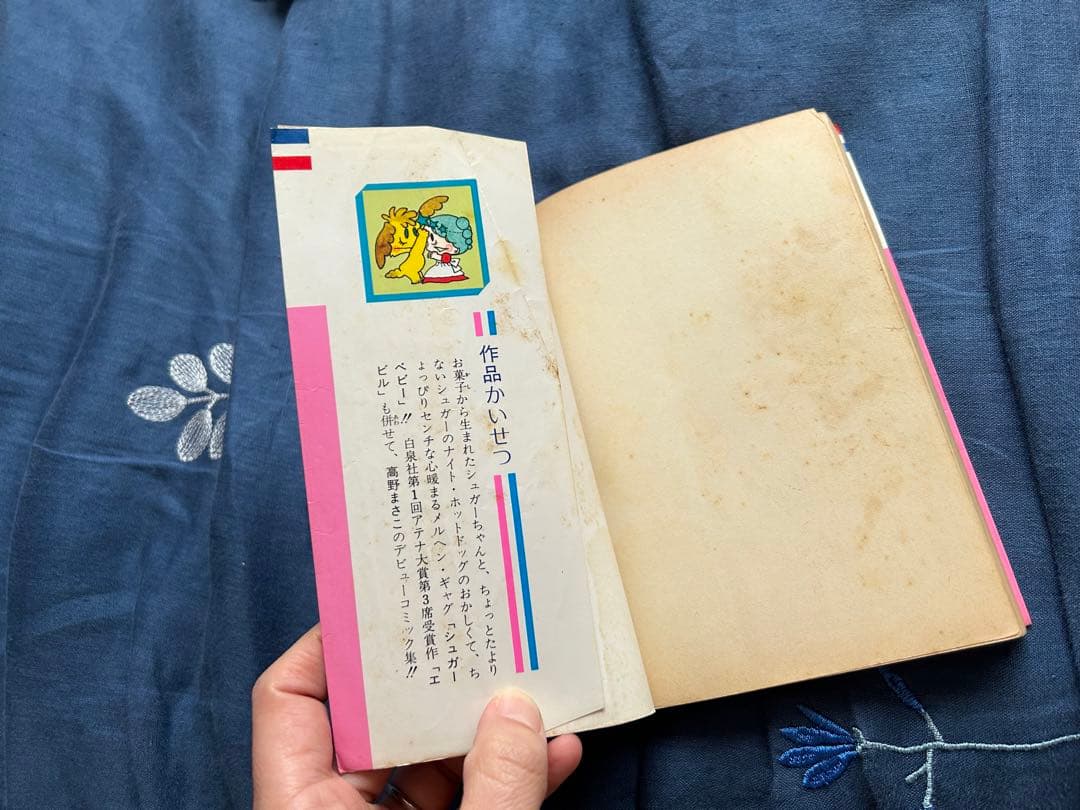 作品かいせつ
お菓子から生まれたシュガーちゃんと、ちょっとたより
ないシュガーのナイト・ホットドッグのおかしくて、ち
ょっぴりセンチな心暖まるメルヘン・ギャグ「シュガー
ベビー」!! 白泉社第1回アテナ大賞第3席受賞作「エ
ビル」も併せて、高野まさこのデビューコミック集!!